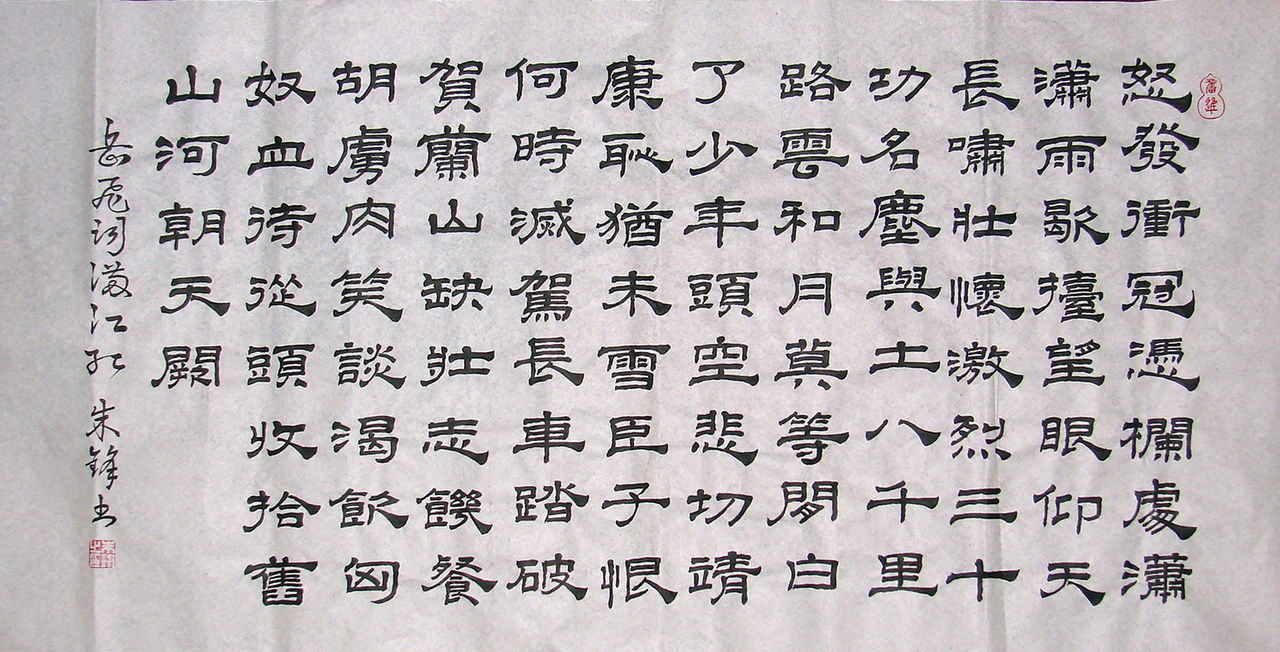 怒發衝冠憑欄處瀟
瀟雨歇擡望眼仰天
長嘯壯懷激烈三十
功名塵與土八千里
路雲和月莫等閒白
了少年頭空悲切靖
康恥猶未雪臣子恨
何時滅駕長車踏破
賀蘭山缺壯志饑餐
胡虜肉笑談渴飲匈
奴血待從頭收拾舊
山河朝天闕
岳飛詞滿江紅 朱鋒书